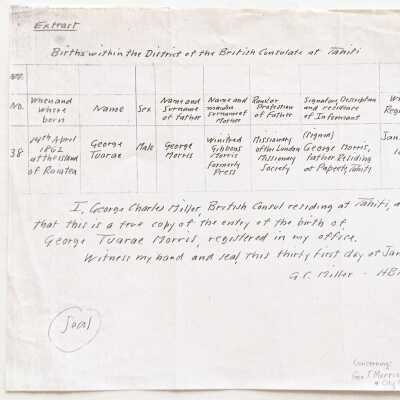 Extract
Births within the District of the British Consulate at Tahiti
No. When and where born Name Sex Name and Surname of Father Name and maiden Surname of Mother Rank or Profession of Father Signature, Description and residence of Informant
38 14th April 1862 at the island of Raiatea George Tuarae Male George Morris Winifred Gibbons Morris Formerly Press Missionary of the London Missionary Society (signed) George Morris, Father Residing at Papeete, Tahiti Jan
I, George Charles Miller, British Consul residing at Tahiti,
that this is a true copy of the entry of the birth of
George Tuarae Morris, registered in my office.
Witness my hand and seal this thirty first day of Jan
G.C. Miller - HB
Seal
Concerning:
Geo T Morris